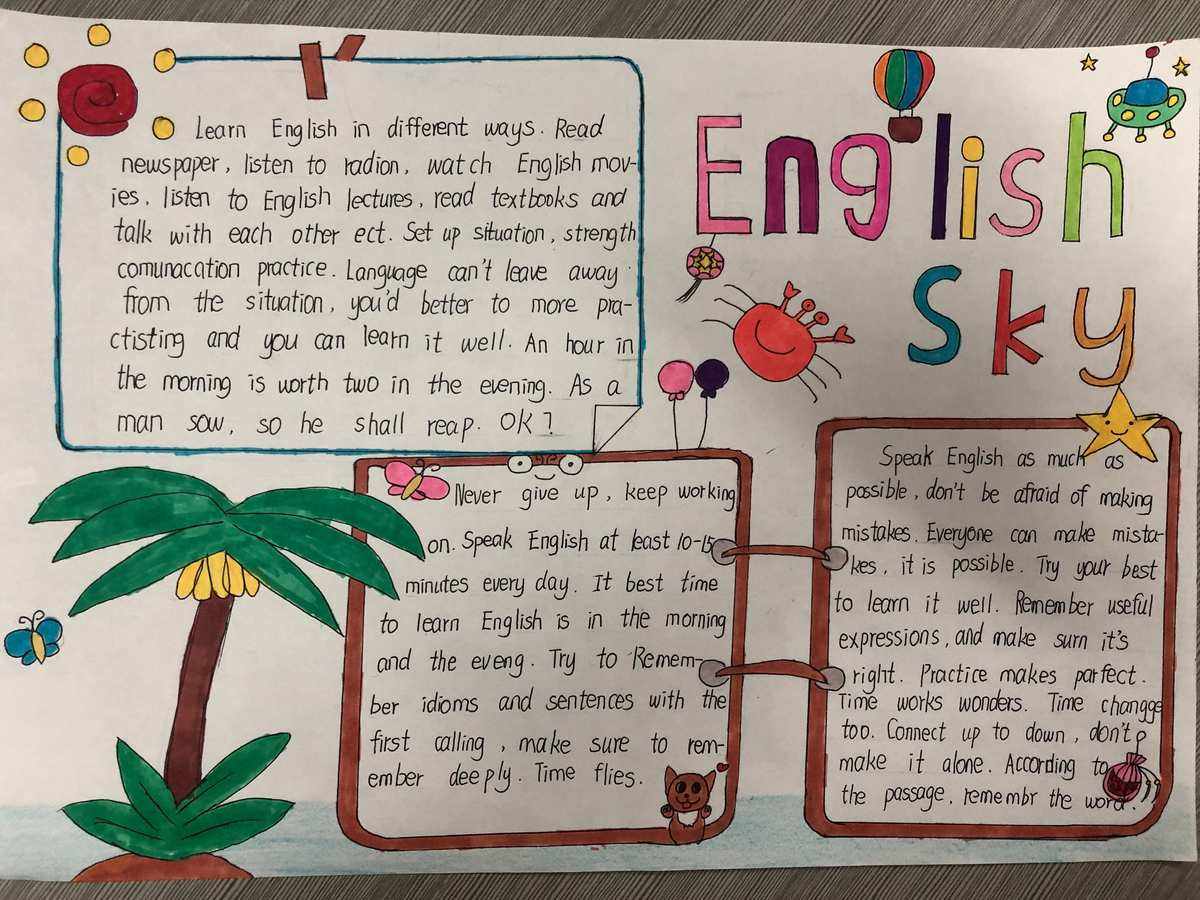 English
Sky
Learn English in different ways. Read
newspaper, listen to radion, watch English mov-
ies. listen to English lectures, read textbooks and
talk with each other ect. Set up situation, strength
comunacation practice. Language can't leave away
from the situation, you'd better to more pra-
ctisting and you can learn it well. An hour in
the morning is worth two in the evening. As a
man sow, so he shall reap. OK?
Never give up, keep working
on. Speak English at least 10-15
minutes every day. It best time
to learn English is in the morning
and the eveng. Try to Remem-
ber idioms and sentences with the
first calling, make sure to rem-
ember deeply. Time flies.
Speak English as much as
possible, don't be afraid of making
mistakes. Everyone can make mista-
kes, it is possible. Try your best
to learn it well. Remember useful
expressions, and make surn it's
right. Practice makes parfect.
Time works wonders. Time changge
too. Connect up to down, don't
make it alone. According to
the passage, remembr the word.